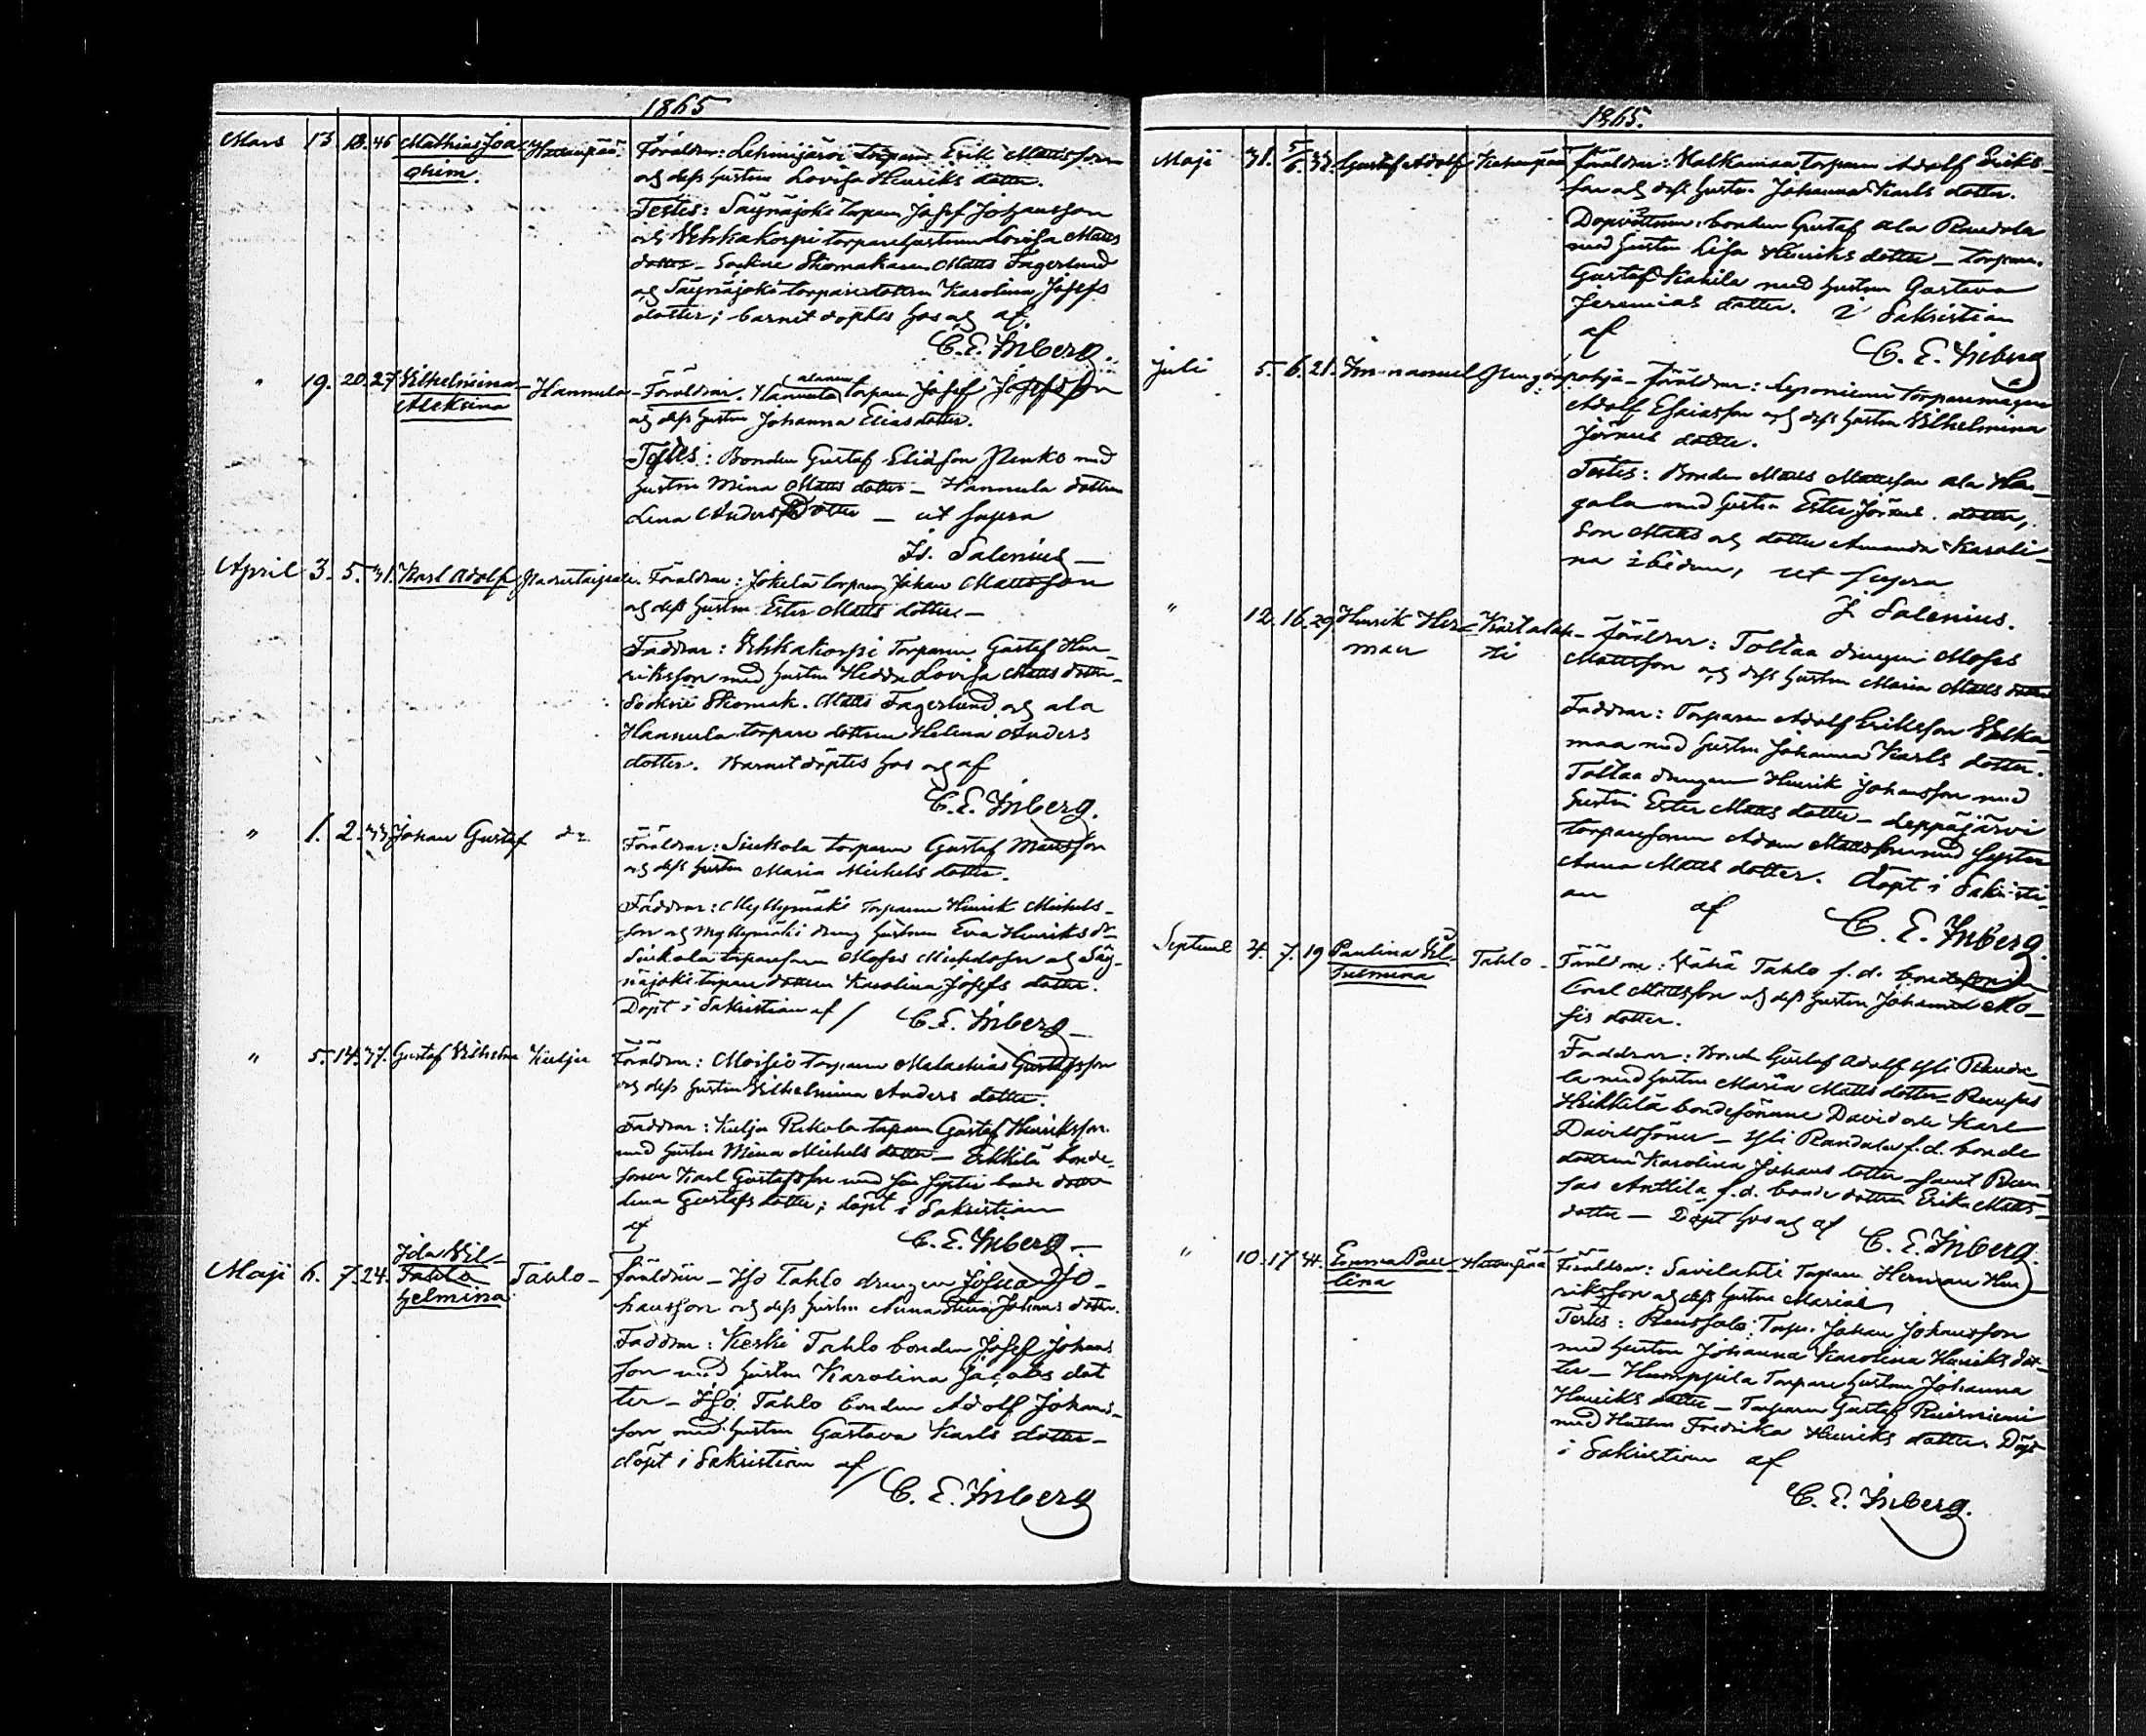 1865
Mars 13. 18. 46 Mathias Joa-
chim.
Föräldrar: Lehmijärvi torparn Erik Mattsson
och dess hustru Lovisa Henriks dotter.
Testes: Säynäjoki torparn Josef Johansson
och Vehkakorpi torpare hustrun Lovisa Matts
dotter – Sockne Skomakaren Matts Fagerlund
och Säynäjoki torpare dottren Karolina Josefs
dotter; barnet döptes hos och af
C. E. Inberg.
" 19. 20. 27 Vilhelmina Hannula – Föräldrar. Hannula torparn Josef Josefsson
Aleksina
och dess hustru Johanna Elias dotter.
Testes: Bonden Gustaf Eliasson Penko med
hustru Mina Matts dotter – Hannula dottren
Lena Anders Dotter – ut supra
Salenius
April 3. 5. 31. Karl Adolf Föräldrar: Jokela torparn Johan Mattsson
och dess hustru Ester Matts dotter –
Faddrar: Vehkakorpi Torparen Gustaf Hen-
riksson med hustru Hedda Lovisa Matts dotter –
Sockne Skomak. Matts Fagerlund och ala
Hannula torpare dottren Helena Anders
dotter. Barnet döptes hos och af
C. E. Inberg.
" 1. 2. 33 Johan Gustaf do
Föräldrar: Sinkola torparen Gustaf Mattsson
och dess hustru Maria Michels dotter.
Faddrar: Myllymäki Torparen Henrik Michels-
son och Myllymäki dreng hustrun Eva Henriks dr
Sinkola torparesonen Moses Michelsson och Säy-
näjoki torpare dottren Karolina Josefs dotter.
Döpt i Sakristian af / C. E. Inberg –
" 5. 14. 37. Gustaf Vilhelm Kulju Föräldrar: Moisio torparen Malachias Gustafsson
och dess hustru Vilhelmina Anders dotter.
Faddrar: Kulju Rekola torparn Gustaf Henriksson
med hustru Mina Michels dotter – Erkkilä bonde-
sonen Karl Gustafsson med sin syster bonde dotter
Lena Gustafs dotter; döpt i Sakristian
af
C. E. Inberg –
Maji 6. 7. 24. Ida Vil-
Tahlo
helmina
Tahlo –
Föräldrar – Iso Tahlo drengen Josua Jo-
hansson och dess hustru Anna Stina Johans dotter.
Faddrar: Keski Tahlo bonden Josef Johans
son med hustru Karolina Jacobs dot
ter – Iso Tahlo bonden Adolf Johans-
son med hustru Gustava Karls dotter –
döpt i Sakristian af /
C. E. Inberg
1865.
Maji 31. 5/6. 32. Gustaf Adolf Föräldrar: Valkamaa Torparen Adolf Eriks-
son och dess hustru Johanna Karls dotter.
Dopvittnen: bonden Gustaf ala Randola
med hustru Lisa Henriks dotter – torparn
Gustaf Kahila med hustru Gustava
Jeremias dotter. i Sakristian
af
C. E. Inberg
Juli 5. 6. 21. Immanuel – Föräldrar: Leponiemi torparemågen
Adolf Esaiasson och dess hustru Vilhelmina
Jöraus dotter.
Testes: Bonden Matts Mattsson ala Han-
gala med hustru Ester Jöraus dotter,
Son Matts och dotter Amanda Karoli-
na ibidem, ut supra
J. Salenius.
" 12. 16. 29. Henrik Her-
man
Föräldrar: Tottaa drengen Moses
Mattsson och dess hustru Maria Matts dotter
Faddrar: Torparen Adolf Eriksson Valka-
maa med hustru Johanna Karls dotter.
Tottaa drengen Henrik Johansson med
hustru Ester Matts dotter – Leppäjärvi
torparesonen Adam Mattsson med syster
Anna Matts dotter. Döpt i Sakristi-
an
af
C. E. Inberg.
Septemb 4. 7. 19 Paulina Vil-
helmina
Tahlo –
Föräldrar: Vähä Tahlo f. d. bondesonen
Carl Mattsson och dess hustru Johanna Mo-
sis dotter.
Faddrar: Bonden Gustaf Adolf Yli Rando-
la med hustru Maria Matts dotter –
Heikkilä bondesönerne David och Karl
Davidssöner – Yli Randola f.d. bonde
dottren Karolina Johans dotter – samt
Anttila f.d. bonde dottren Erika Matts-
dotter – Döpt hos och af
C. E. Inberg.
" 10. 17. 44. Emma Pau-
lina
Föräldrar: Savilahti Torparn Herman Hen-
riksson och dess hustru Maria
Testes: Torp. Johan Johansson
med hustru Johanna Karolina Henriks dot-
ter – Humpjula Torpare hustrun Johanna
Henriks dotter – Torparen Gustaf
med Hustru Fredrika Henriks dotter. Döpt
i Sakristian af
C. E. Inberg.